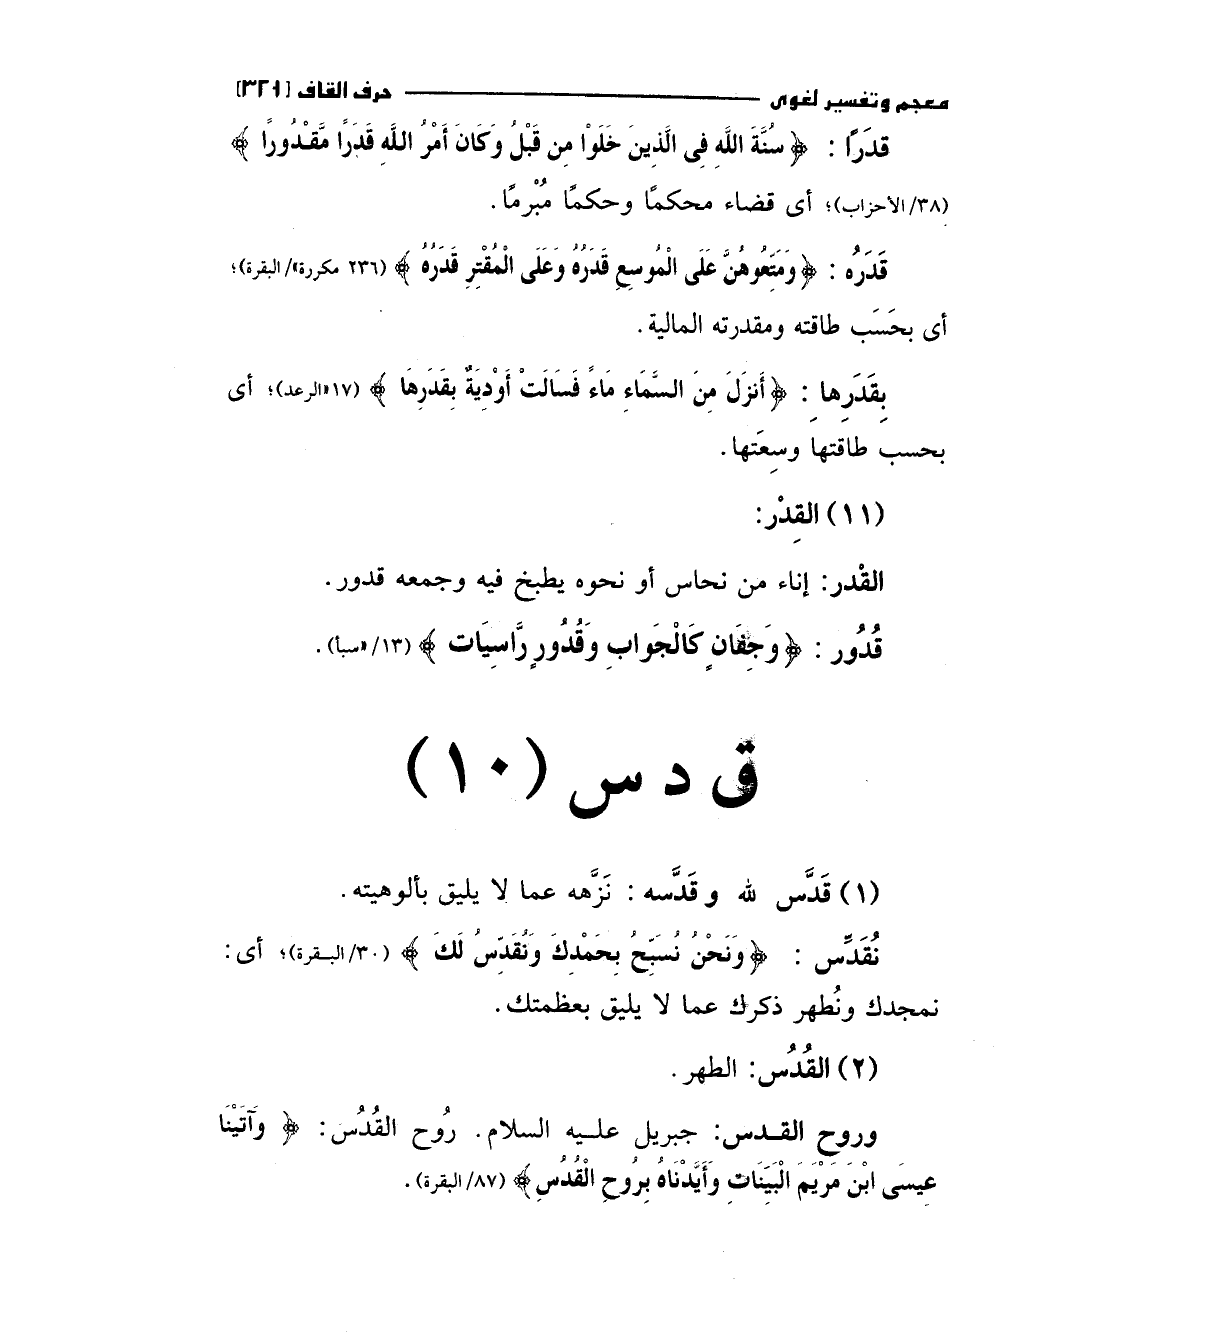 معجم وتفسير لغوى ــــــــــــــــ حرف القاف [٣٢١]
قدَرًا : ﴿ سُنَّةَ اللَّهِ فِى الَّذِينَ خَلَوْا مِن قَبْلُ وَكَانَ أَمْرُ اللَّهِ قَدَرًا مَّقْدُورًا ﴾
(٣٨/الأحزاب)؛ أى قضاء محكمًا وحكمًا مُبْرمًا.
قَدَرُه : ﴿ وَمَتِّعُوهُنَّ عَلَى الْمُوسِعِ قَدَرُهُ وَعَلَى الْمُقْتِرِ قَدَرُهُ ﴾ (٢٣٦ مكررة*/البقرة)؛
أى بحَسَب طاقته ومقدرته المالية.
بِقَدَرِهاِ : ﴿ أَنزَلَ مِنَ السَّمَاءِ مَاءً فَسَالَتْ أَوْدِيَةٌ بِقَدَرِهَا ﴾ (١٧*الرعد)؛ أى
بحسب طاقتها وسِعَتها.
(١١) القِدْر:
القْدر: إناء من نحاس أو نحوه يطبخ فيه وجمعه قدور.
قُدُور : ﴿ وَجِفَانٍ كَالْجَوَابِ وَقُدُورٍ رَّاسِيَات ﴾ (١٣/*سبأ).
ق د س (١٠)
(١) قَدَّس لله و قَدَّسه : نَزَّهه عما لا يليق بألوهيته.
نُقَدِّس : ﴿ وَنَحْنُ نُسَبِّحُ بِحَمْدِكَ وَنُقَدِّسُ لَكَ ﴾ (٣٠/البـقرة)؛ أى:
نمجدك ونُطهر ذكرك عما لا يليق بعظمتك.
(٢) القُدُس: الطهر.
وروح القـدس: جبريل علـيه السلام. رُوح القُدُس: ﴿ وَآتَيْنَا
عِيسَى ابْنَ مَرْيَمَ الْبَيِّنَاتِ وَأَيَّدْنَاهُ بِرُوحِ الْقُدُسِ ﴾ (٨٧/البقرة).